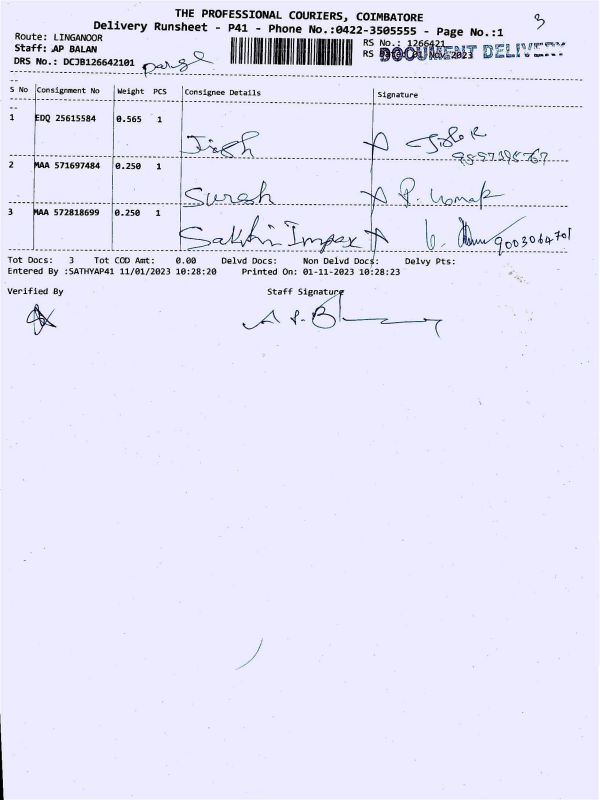 THE PROFESSIONAL COURIERS, COIMBATORE
3
Delivery Runsheet - P41 - Phone No.:0422-3505555 - Page No.:1
Route: LINGANOOR
RS No.: 1266421
Staff: AP BALAN
RS 01 Nov 2023
DOCUMENT DELIVERY
DRS No.: DCJB126642101
S No Consignment No Weight PCS Consignee Details Signature
1 EDQ 25615584 0.565 1
2 MAA 571697484 0.250 1 Suresh P.
3 MAA 572818699 0.250 1 Sakthi Impex 9003064701
Tot Docs: 3 Tot COD Amt: 0.00 Delvd Docs: Non Delvd Docs: Delvy Pts:
Entered By :SATHYAP41 11/01/2023 10:28:20 Printed On: 01-11-2023 10:28:23
Verified By Staff Signature